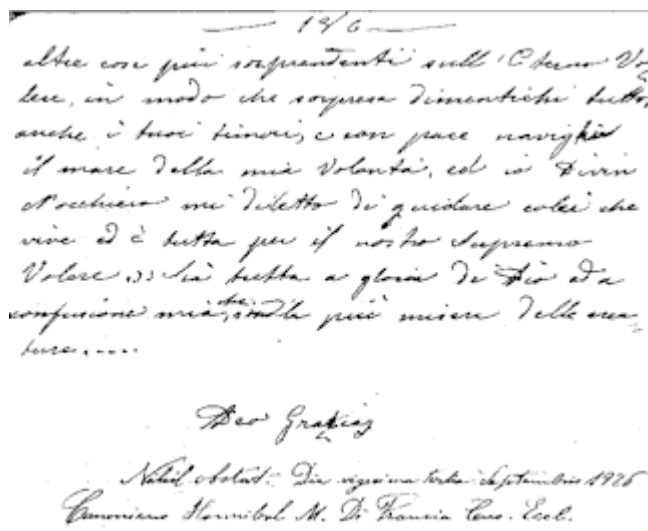 — 196 —
altre cose più sorprendenti sull'Eterno Vo-
lere, in modo che sorpresa dimentichi tutto,
anche i tuoi timori, e con pace navighi
il mare della mia Volontà, ed io Divin
Nocchiero mi diletto di guidare colei che
vive ed è tutta per il nostro Supremo
Volere ,,: Sia tutto a gloria di Dio ed a
confusione mia, che la più misera delle crea-
ture.....
Deo Gratias
Nihil obstat. Die vigesima tertia Septembris 1926
Canonicus Hannibal M. Di Francia Cens. Eccl.